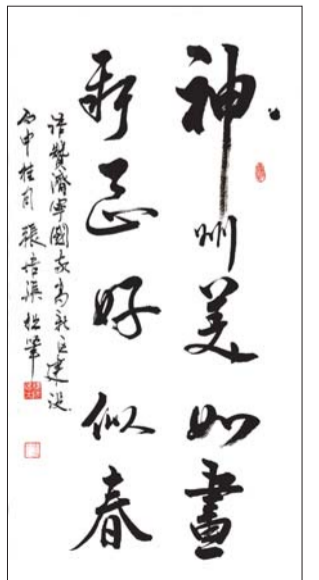 神州美如畫
新区好似春
诗贊濟寧國家高新区建设
丙申桂月 張培 拙筆